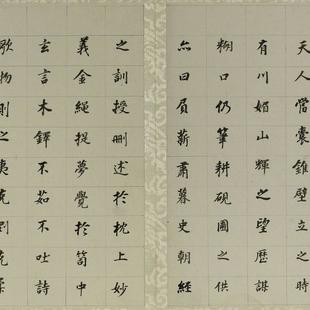 天人當囊錐壁立之時
有川媚山輝之望歷謀
糊口仍筆耕硯圃之供
亦曰負薪肅暮史朝經
之訓授刪述於枕上妙
義金繩提夢覺於笥中
玄言木鐸不茹不吐詩
歌物則之夷克剛克柔